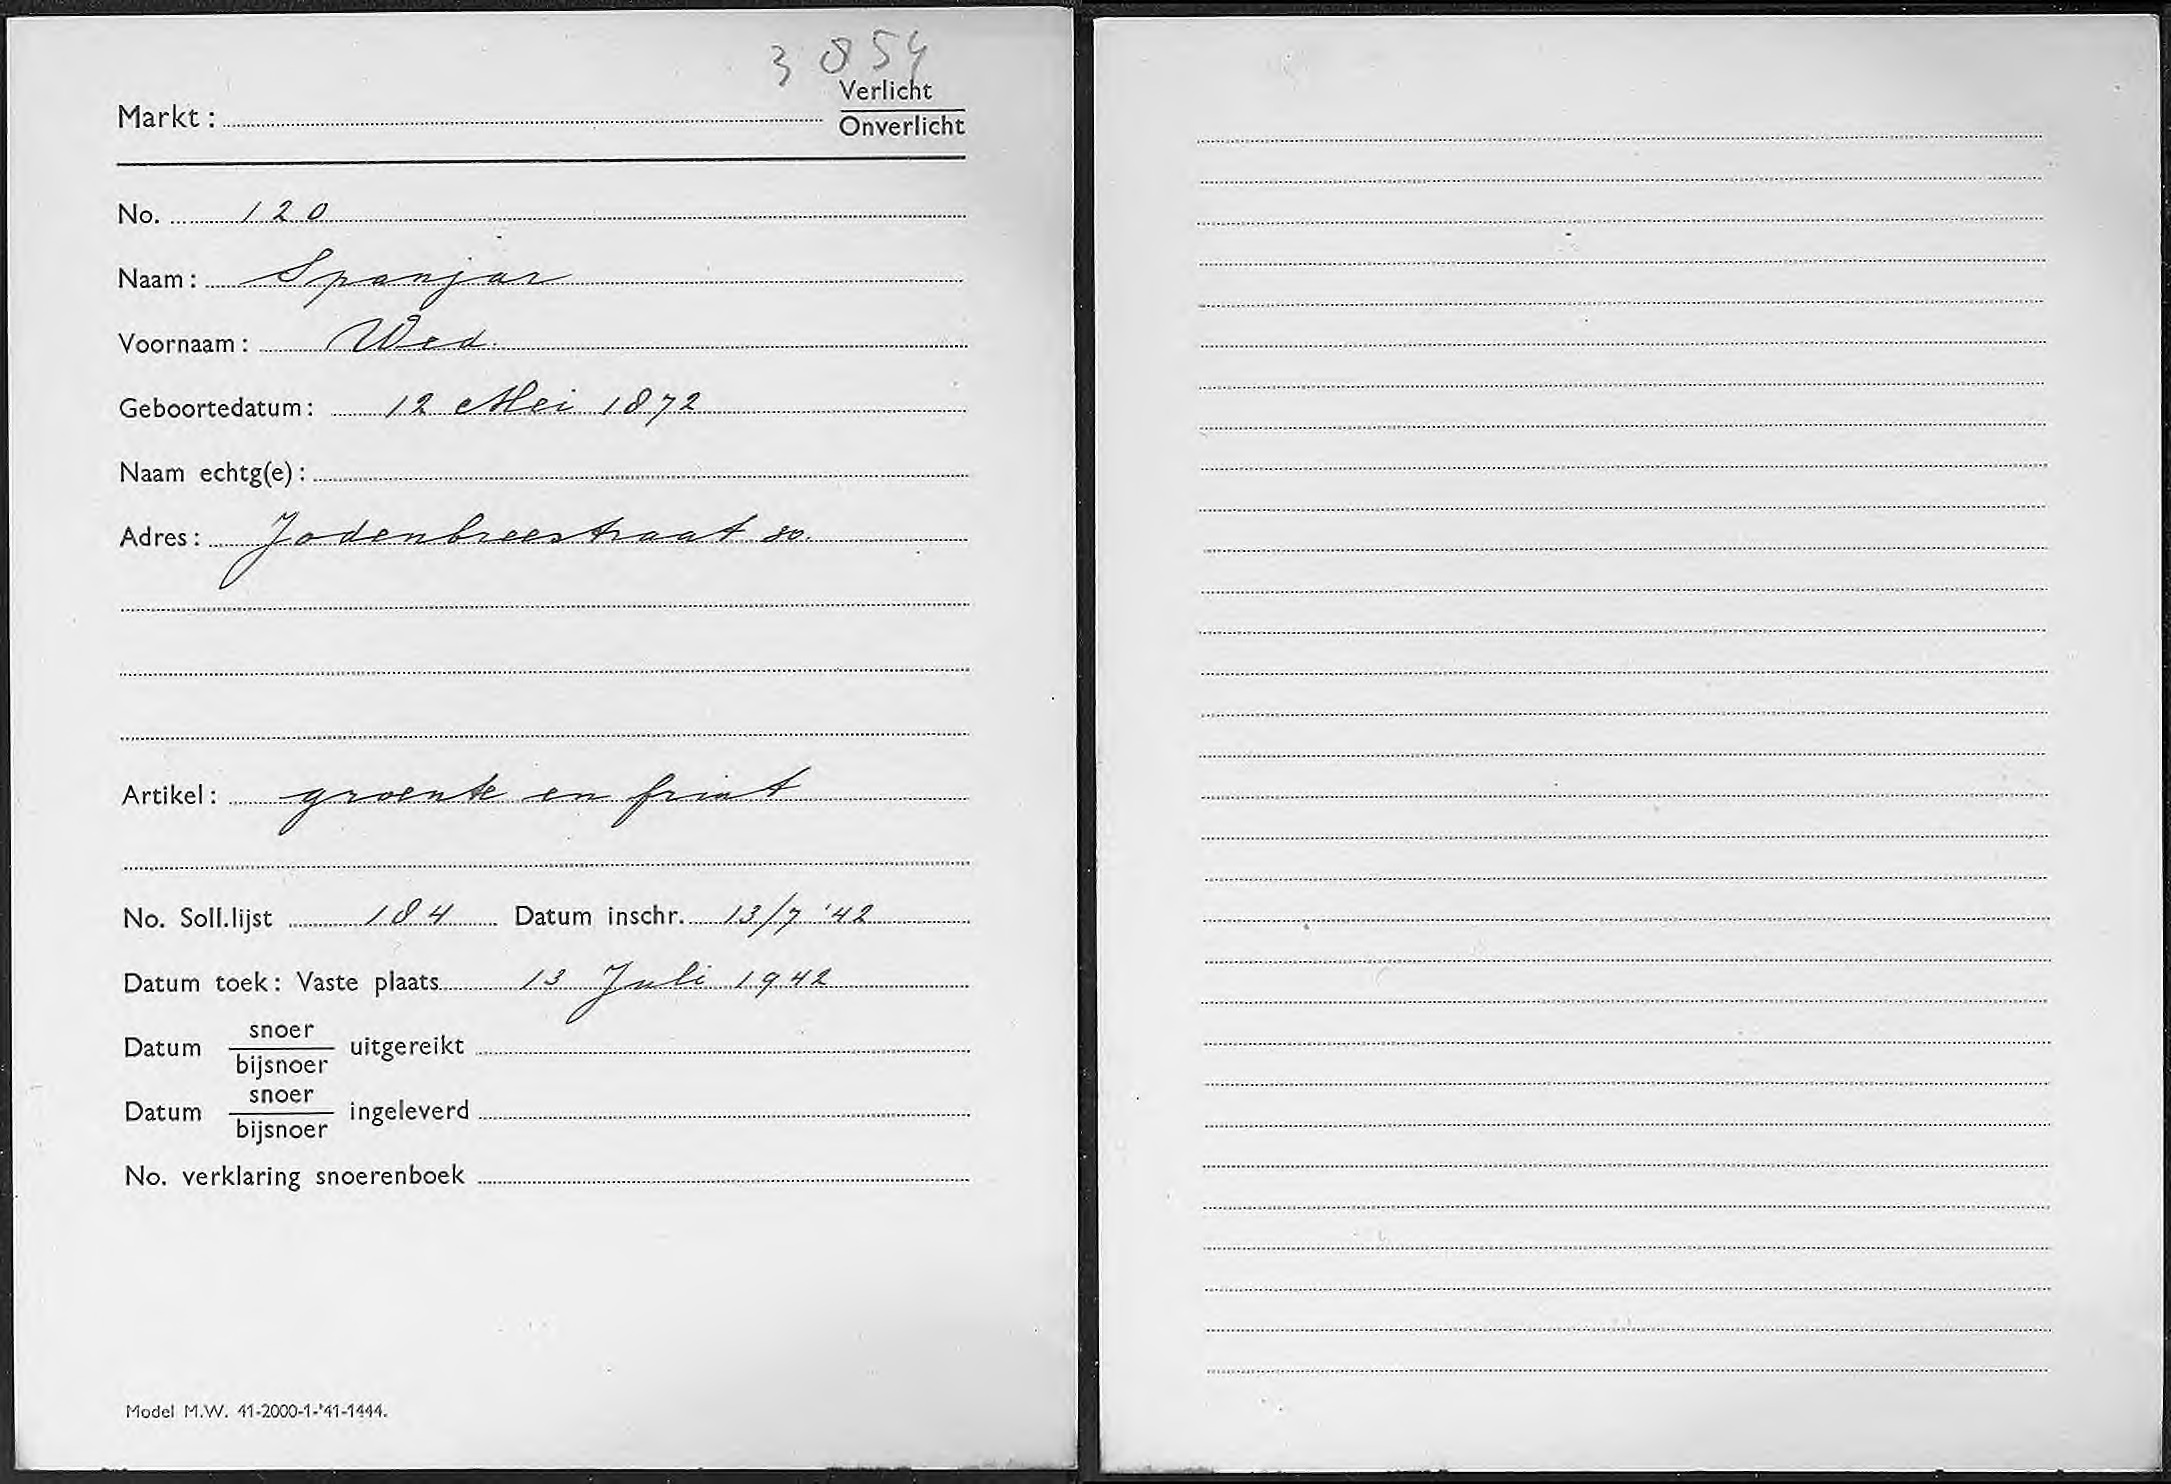 3854
Markt: Verlicht
Onverlicht
No. 120
Naam: Spanjar
Voornaam: Wed.
Geboortedatum: 12 Mei 1872
Naam echtg(e):
Adres: Jodenbreestraat 80.
Artikel: groente en fruit
No. Soll.lijst 184 Datum inschr. 13/7 '42
Datum toek: Vaste plaats 13 Juli 1942
Datum snoer/bijsnoer uitgereikt
Datum snoer/bijsnoer ingeleverd
No. verklaring snoerenboek
Model M.W. 41-2000-1-'41-1444.